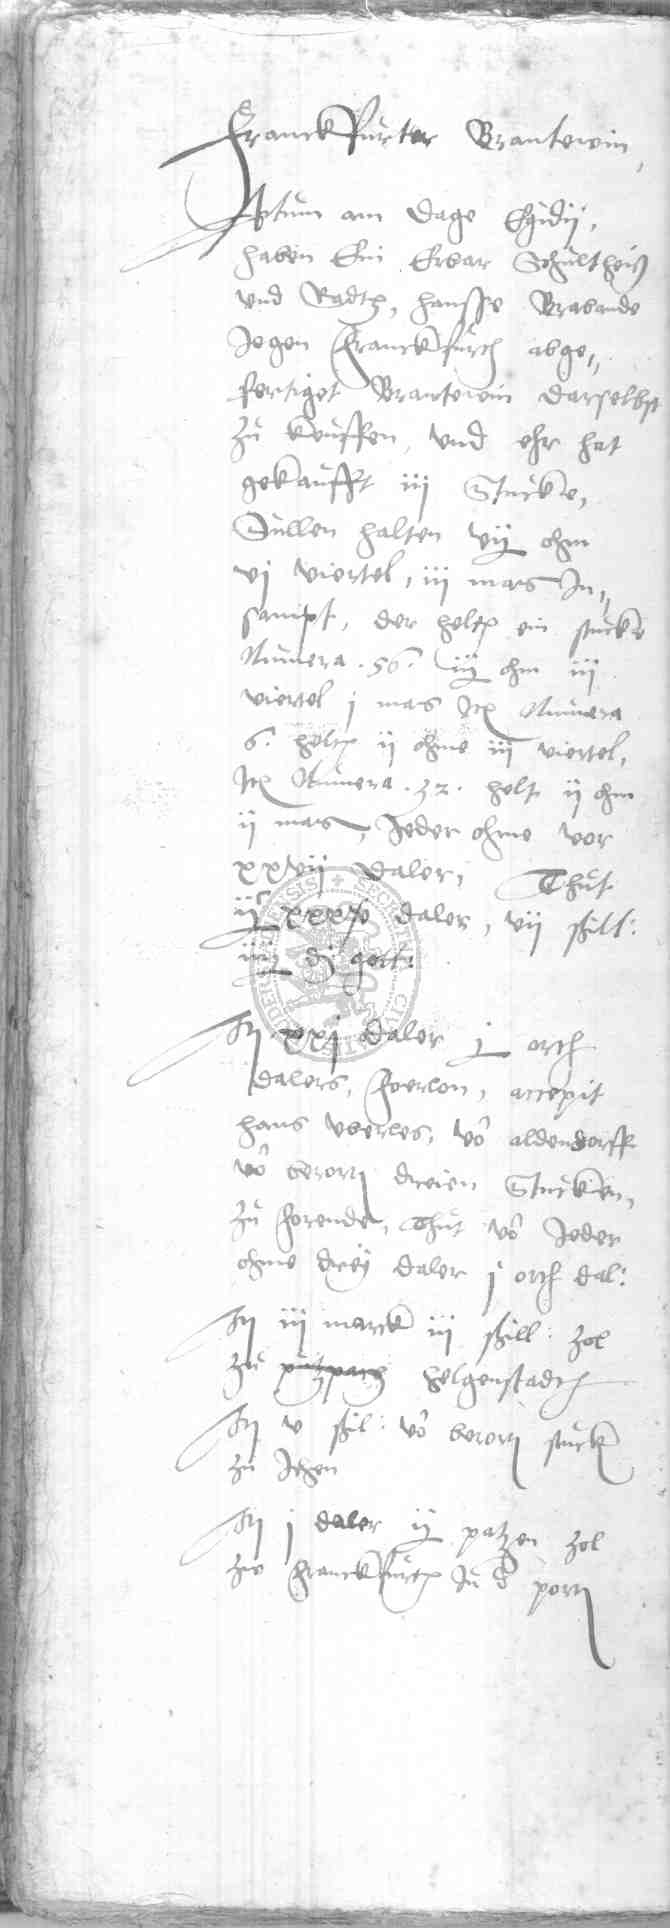 Franckfurter Brantewin,
Actum am dage Egidij,
haben Ein Erbar Schultheiß
vnd Radth, hansse Brabande
Jegen Franckfurth abge„
fertiget Brantewin darselbst
zu keuffen, vnd ehr hat
gekaufft iij Stucke,
Sullen halten vij ohm
vj viertel, iij mas In„
sampt, der helth ein stucke
Numera . 56 . iij ohm iij
viertel j mas Jth Numera
6. helth ij ohme iij viertel,
Jth Numera . 32 . helt ij ohm
ij mas, Jeder ohme vor
xxvij daler, Thut
daler, vij skill:
iiij gort:
It xxj daler j orth
dalers, Foerlon, accepit
hans Vberles, vō aldendorff
vō berorn dreien Stucken,
zu forende, Thut vō Jeder
ohme drey daler j orth dal:
It iij marck iij skill: zol
zu helgenstadth
It v skil: vō berorn stuck
zu
It j daler ij patzen zol
zu Franckfurth In d porn